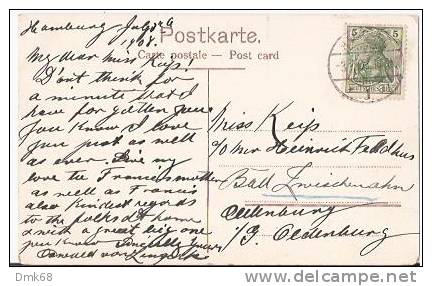 Hamburg July 26
1908.
Postkarte.
Carte postale — Post card
5 5
My dear Miss Keip!
Don't think for
a minute that I
have forgotten you
you know I love
you just as well
as ever. Give my
love to Francis mother
as well as Francis
also kindest regards
to the folks at home
& with a great big one
you know
Oswald von
Miss Keip
c/o Herr Heinrich
Bad Zwischenahn
Oldenburg
i/G. Oldenburg
Dmk68
delcampe.net